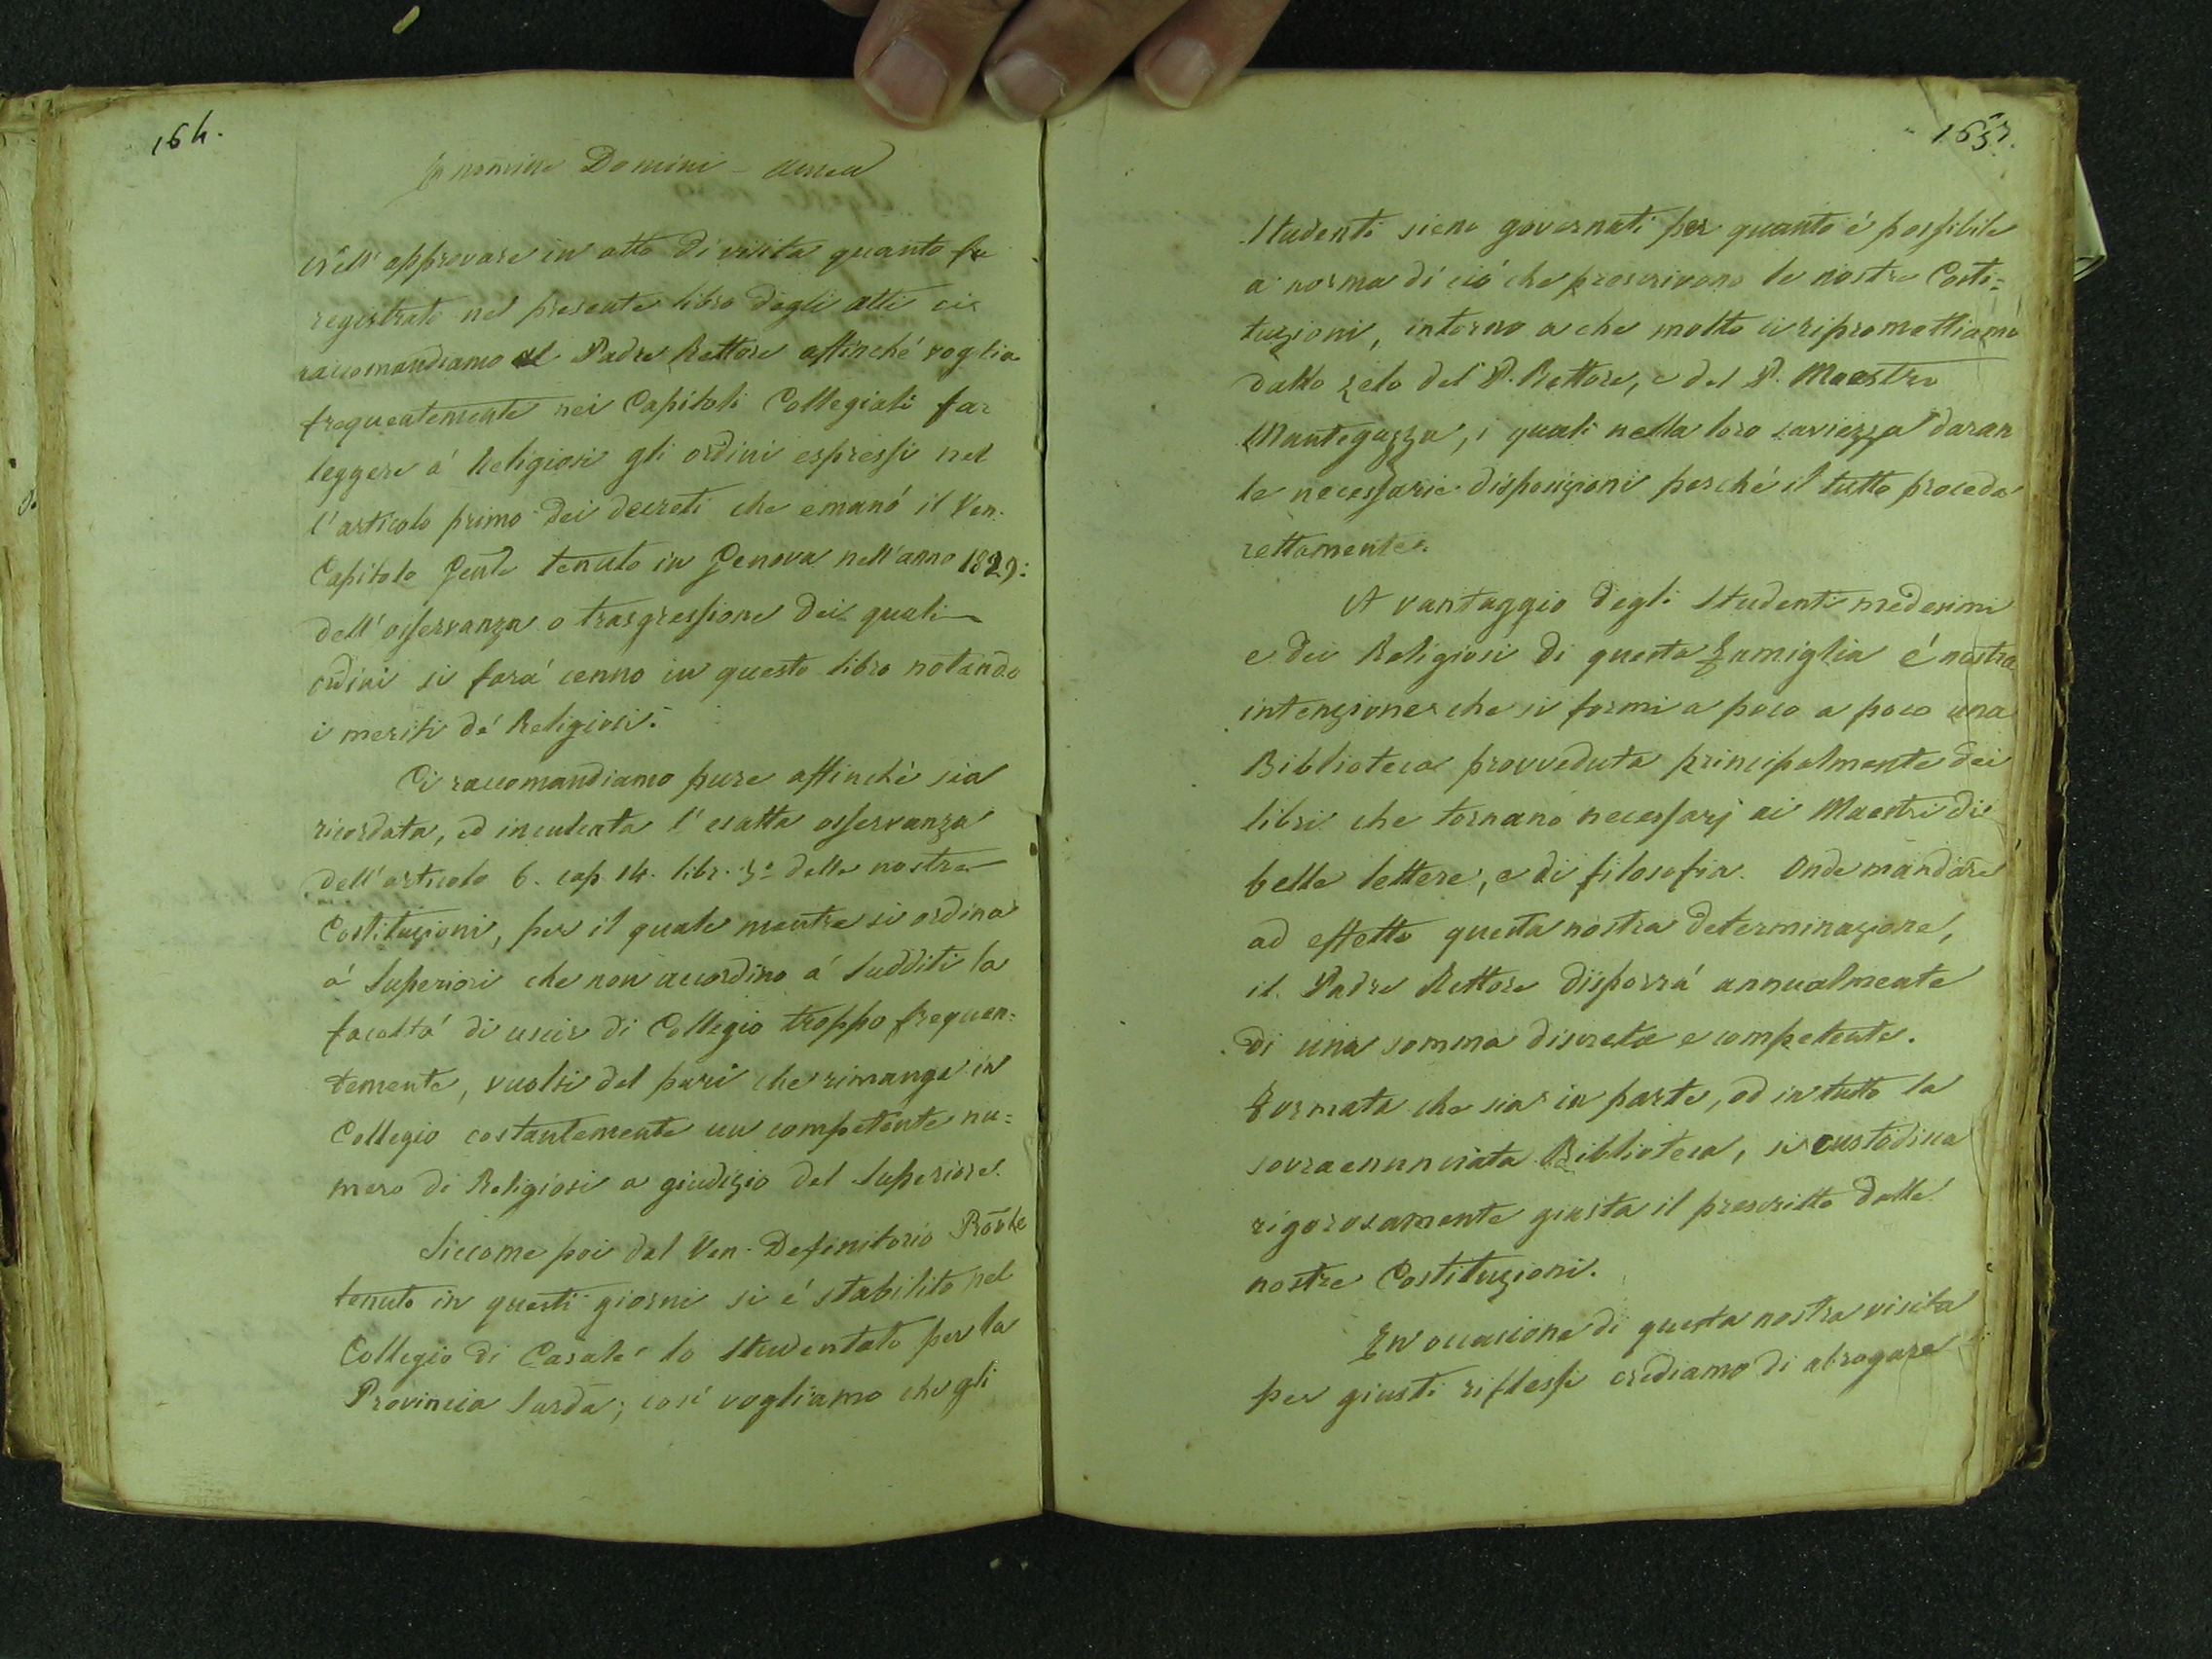 164.
In nomine Domini - Amen
Nell' approvare in atto di visita quanto fu
registrato nel presente libro degli atti ci
raccomandiamo al Padre Rettore affinché voglia
frequentemente nei Capitoli Collegiali far
leggere a' Religiosi gli ordini espressi nel
l'articolo primo dei decreti che emanó il Ven.
Capitolo Genle tenuto in Genova nell'anno 1829:
dell'osservanza o trasgressione dei quali
ordini si fará cenno in questo libro notando
i meriti de' Religiosi.
Ci raccomandiamo pure affinché sia
ricordata, ed inculcata l'esatta osservanza
dell'articolo 6. cap. 14. libr. 3º delle nostre
Costituzioni, per il quale mentre si ordina
a' Superiori che non accordino a' Sudditi la
facoltá di uscir di Collegio troppo frequen=
temente, vuolsi del pari che rimanga in
Collegio costantemente un competente nu=
mero di Religiosi a giudizio del Superiore.
Siccome poi dal Ven. Definitorio Provle
tenuto in questi giorni si é stabilito nel
Collegio di Casale lo Studentato per la
Provincia Sarda; cosí vogliamo che gli
165.
Studenti sieno governati per quanto é possibile
a norma di ció che prescrivono le nostre Costi=
tuzioni, intorno a che molto ci ripromettiamo
dallo zelo del P. Rettore, e del P. Maestro
Mantegazza, i quali nella loro saviezza daran
le necessarie disposizioni perché il tutto proceda
rettamente.
A vantaggio degli Studenti medesimi
e dei Religiosi di questa Famiglia é nostra
intenzione che si formi a poco a poco una
Biblioteca provveduta principalmente dei
libri che tornano necessarj ai Maestri di
belle lettere, e di filosofia. Onde mandare
ad effetto questa nostra determinazione,
il Padre Rettore disporrá annualmente
di una somma discreta e competente.
Formata che sia in parte, od in tutto la
sovraenunciata Biblioteca, si custodisca
rigorosamente giusta il prescritto dalle
nostre Costituzioni.
In occasione di questa nostra visita
per giusti riflessi crediamo di abrogare